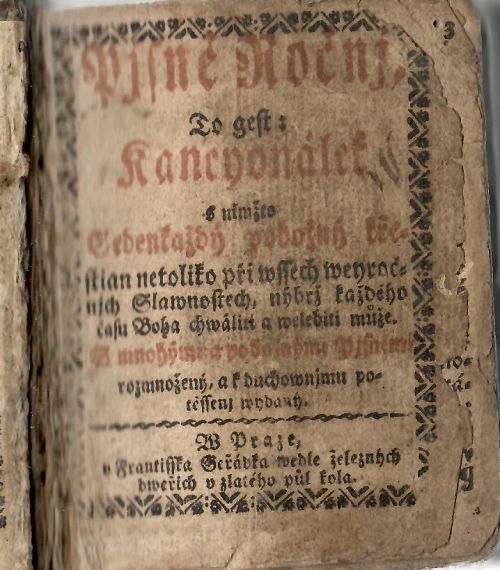 Pjsně Ročnj,
To gest:
Kancyonálek
s nimžto
Gedenkaždý pobožný kře-
stian netoliko při wssech weyroč-
njch Slawnostech, nýbrž každého
času Boha chwáliti a welebiti může.
S mnohými a pobožnými Pjsněmi
rozmnožený, a k duchownjmu po-
těssenj wydaný.
W Praze,
v Frantisska Geřábka wedle železných
dweřich v zlatého půl kola.
3